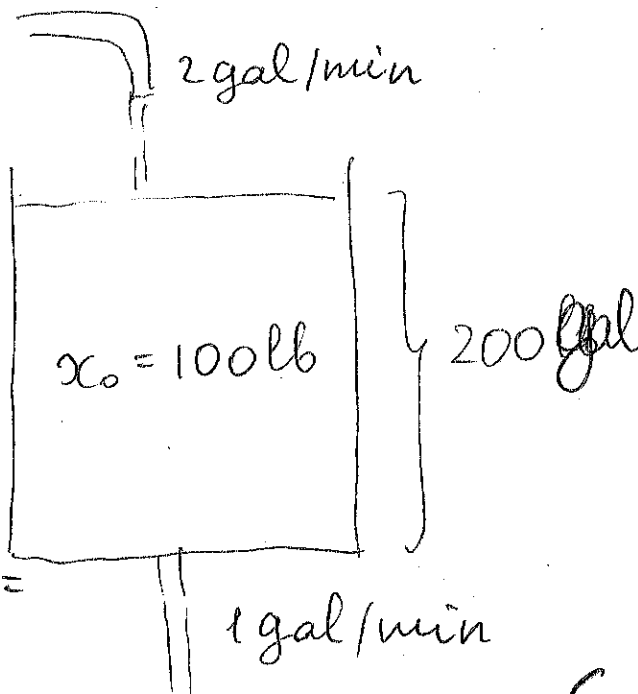 2 gal/min
x₀ = 100 lb
200 gal
=
1 gal/min